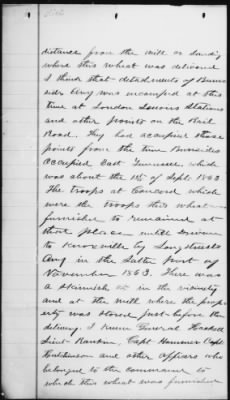 distance from the mill or landing
where this wheat was delivered
I think that detachments of Burn
sides Army was encamped at this
time at London Lenoirs Stations
and other points on the Rail
Road. They had occupied these
points from the time Burnsides
Occupied East Tennessee which
was about the 1st of Sept. 1863
The troops at Concord which
were the troops this wheat
furnished to remained at
that place until driven
to Knoxville by Longstreets
Army in the Latter part of
November 1863. There was
a Skirmish at in the vicinity
and at the mill where the prop
erty was stored just before the
delivery. I knew General Haskell
Lieut Rankin, Capt Hammer Capt
Hutchinson and other officers who
belonged to the command to
which this wheat was furnished